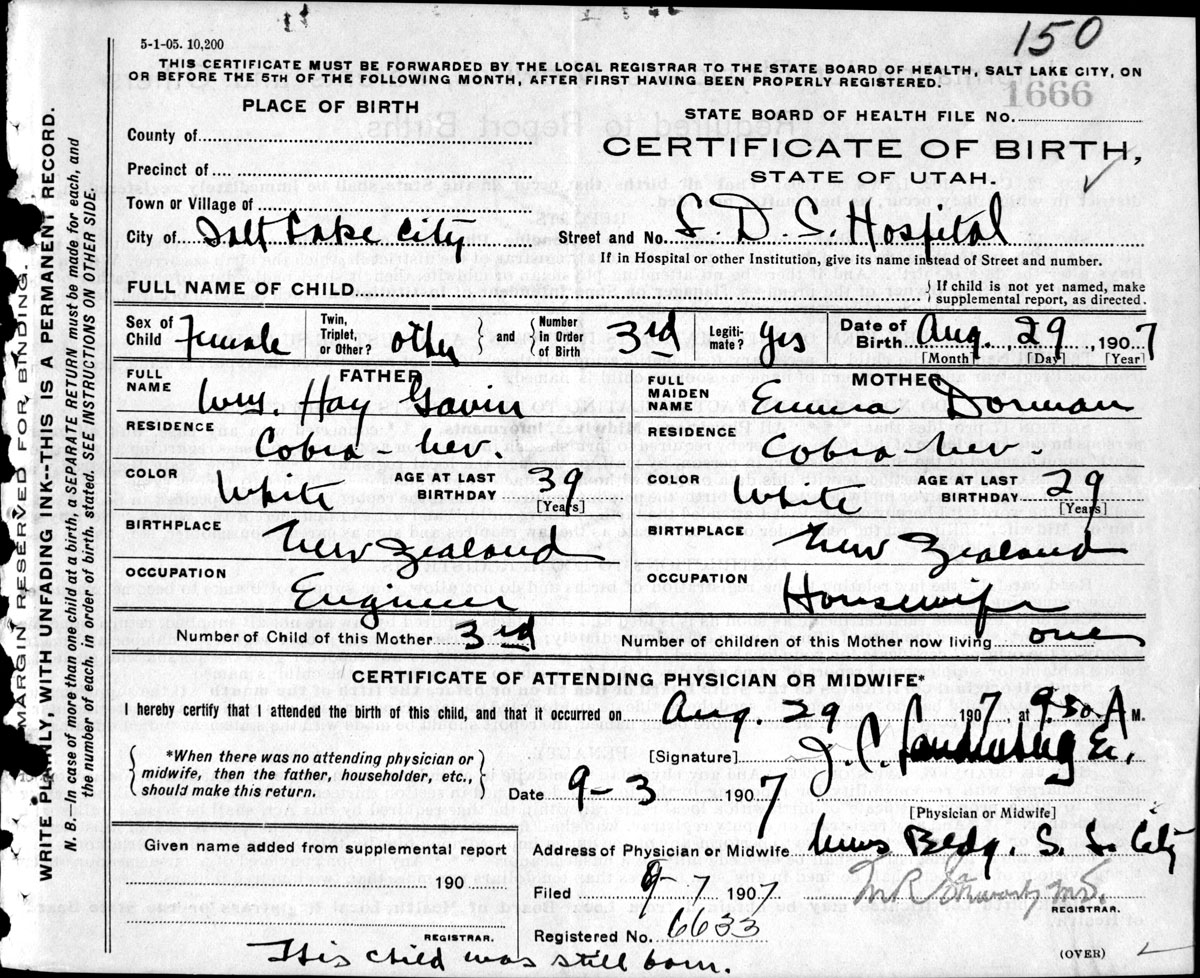 150
5-1-05. 10,200
THIS CERTIFICATE MUST BE FORWARDED BY THE LOCAL REGISTRAR TO THE STATE BOARD OF HEALTH, SALT LAKE CITY, ON
OR BEFORE THE 5TH OF THE FOLLOWING MONTH, AFTER FIRST HAVING BEEN PROPERLY REGISTERED.
1666
PLACE OF BIRTH
STATE BOARD OF HEALTH FILE No.
County of
CERTIFICATE OF BIRTH,
STATE OF UTAH.
Precinct of
Town or Village of
City of Salt Lake City Street and No. L. D. S. Hospital
If in Hospital or other Institution, give its name instead of Street and number.
FULL NAME OF CHILD { If child is not yet named, make supplemental report, as directed.
Sex of Child Female Twin, Triplet, or Other? other } and { Number in Order of Birth 3rd Legiti-mate? yes Date of Birth Aug. 29 1907
[Month] [Day] [Year]
FATHER MOTHER
FULL NAME Wm. Hay Gavin FULL MAIDEN NAME Emma Dorman
RESIDENCE Cobra - Nev. RESIDENCE Cobra - Nev.
COLOR White AGE AT LAST BIRTHDAY 39 [Years] COLOR White AGE AT LAST BIRTHDAY 29 [Years]
BIRTHPLACE New Zealand BIRTHPLACE New Zealand
OCCUPATION Engineer OCCUPATION Housewife
Number of Child of this Mother 3rd Number of children of this Mother now living one
CERTIFICATE OF ATTENDING PHYSICIAN OR MIDWIFE*
I hereby certify that I attended the birth of this child, and that it occurred on Aug. 29 1907, at 9:50 A M.
{ *When there was no attending physician or midwife, then the father, householder, etc., should make this return. }
[Signature] J. C.
Date 9-3 1907
[Physician or Midwife]
Given name added from supplemental report
Address of Physician or Midwife News Bldg. S. L. City
190
Filed 9-7 1907
REGISTRAR.
REGISTRAR.
Registered No. 6633
This child was still born.
(OVER)
MARGIN RESERVED FOR BINDING.
WRITE PLAINLY, WITH UNFADING INK--THIS IS A PERMANENT RECORD.
N. B.—In case of more than one child at a birth, a SEPARATE RETURN must be made for each, and
the number of each, in order of birth, stated. SEE INSTRUCTIONS ON OTHER SIDE.